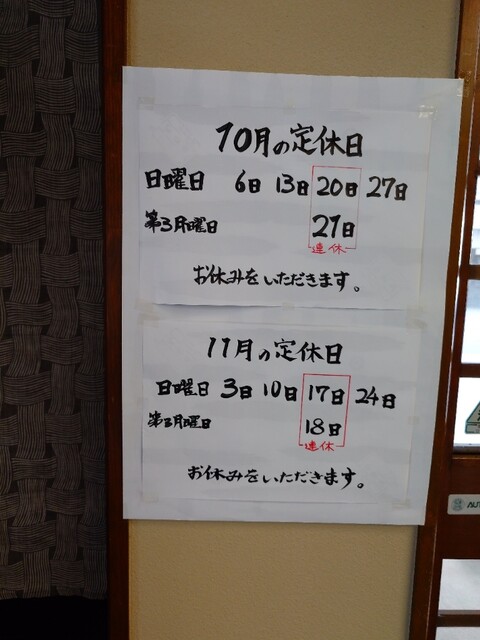 10月の定休日
日曜日 6日 13日 20日 27日
第3月曜日 21日
連休
お休みをいただきます。
11月の定休日
日曜日 3日 10日 17日 24日
第3月曜日 18日
連休
お休みをいただきます。
AUT